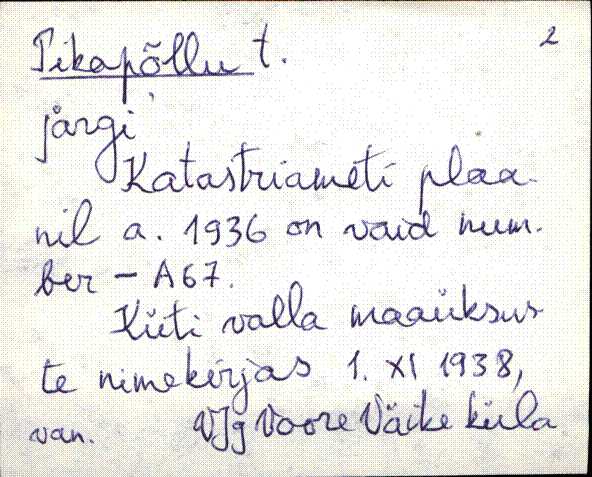 Pikapõllu t. 2
järgi
Katastriameti plaa-
nil a. 1936 on vaid num-
ber - A67.
Küti valla maaüksus-
te nimekirjas 1. XI 1938,
van. VJg Voore Väike küla